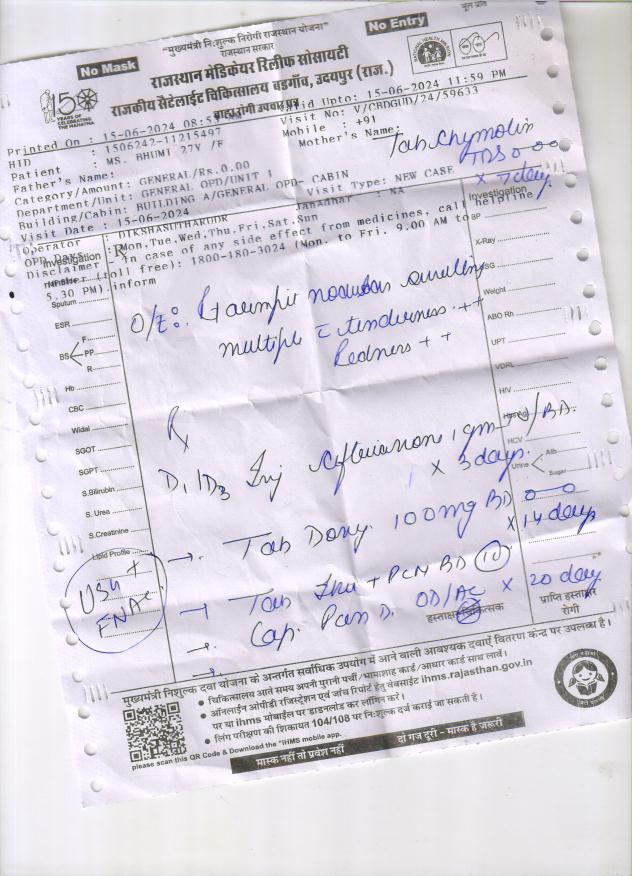 मूल प्रति
"मुख्यमंत्री निःशुल्क निरोगी राजस्थान योजना"
No Entry
राजस्थान सरकार
No Mask
राजस्थान मेडिकेयर रिलीफ सोसायटी
राजकीय सैटेलाईट चिकित्सालय बडगाँव, उदयपुर (राज.)
150
YEARS OF
CELEBRATING
THE MAHATMA
NATIONAL HEALTH MISSION
Printed On : 15-06-2024 08:5
Valid Upto: 15-06-2024 11:59 PM
HID : 1506242-11215497
Visit No: V/CBDGUD/24/59633
Patient : MS. BHUMI 27Y /F
Mobile : +91
Father's Name:
Mother's Name:
Category/Amount: GENERAL/Rs.0.00
Department/Unit: GENERAL OPD/UNIT 1
Building/Cabin: BUILDING A/GENERAL OPD- CABIN
Visit Type: NEW CASE
Visit Date : 15-06-2024
Janadhar : NA
Operator : DIKSHASUTHARUDR
OPD Days : Mon,Tue,Wed,Thu,Fri,Sat,Sun
Disclaimer : In case of any side effect from medicines, call helpline
number (toll free): 1800-180-3024 (Mon. to Fri. 9.00 AM to
5.30 PM).inform
Tab Chymolin
TDS 0 0 0
x 7 days
Investigation
Sputum
ESR
BS F
PP
R
Hb
CBC
Widal
SGOT
SGPT
S.Bilirubin
S. Urea
S.Creatinine
Lipid Profile
USG +
FNAC
Investigation
BP
X-Ray
Weight
ABO Rh
UPT
VDRL
HIV
HCV
Urine Alb
Sugar
O/E: Rt armpit nodular swelling
multiple c tenderness ++
Redness ++
Rx
D1/D3 Inj Ceftriaxone 1gm IV/BD
x 3 days
→ Tab Doxy 100mg BD 0-0
x 14 days
→ Tab Ibu + PCM BD (10)
→ Cap. Pan D. OD/AC x 20 days
→
प्राप्ति हस्ताक्षर
रोगी
मुख्यमंत्री निशुल्क दवा योजना के अन्तर्गत सर्वाधिक उपयोग में आने वाली आवश्यक दवाऐं वितरण केन्द्र पर उपलब्ध है।
• चिकित्सालय आते समय अपनी पुरानी पर्ची/भामाशाह कार्ड/आधार कार्ड साथ लावें।
• ऑनलाईन ओपीडी रजिस्ट्रेशन एवं जांच रिपोर्ट हेतु वेबसाईट ihms.rajasthan.gov.in
पर या ihms मोबाईल पर डाडनलोड कर लॉगिन करें।
• लिंग परीक्षण की शिकायत 104/108 पर निःशुल्क दर्ज कराई जा सकती है।
please scan this QR Code & Download the "iHMS mobile app.
मास्क नहीं तो प्रवेश नहीं
दो गज दूरी - मास्क है जरूरी